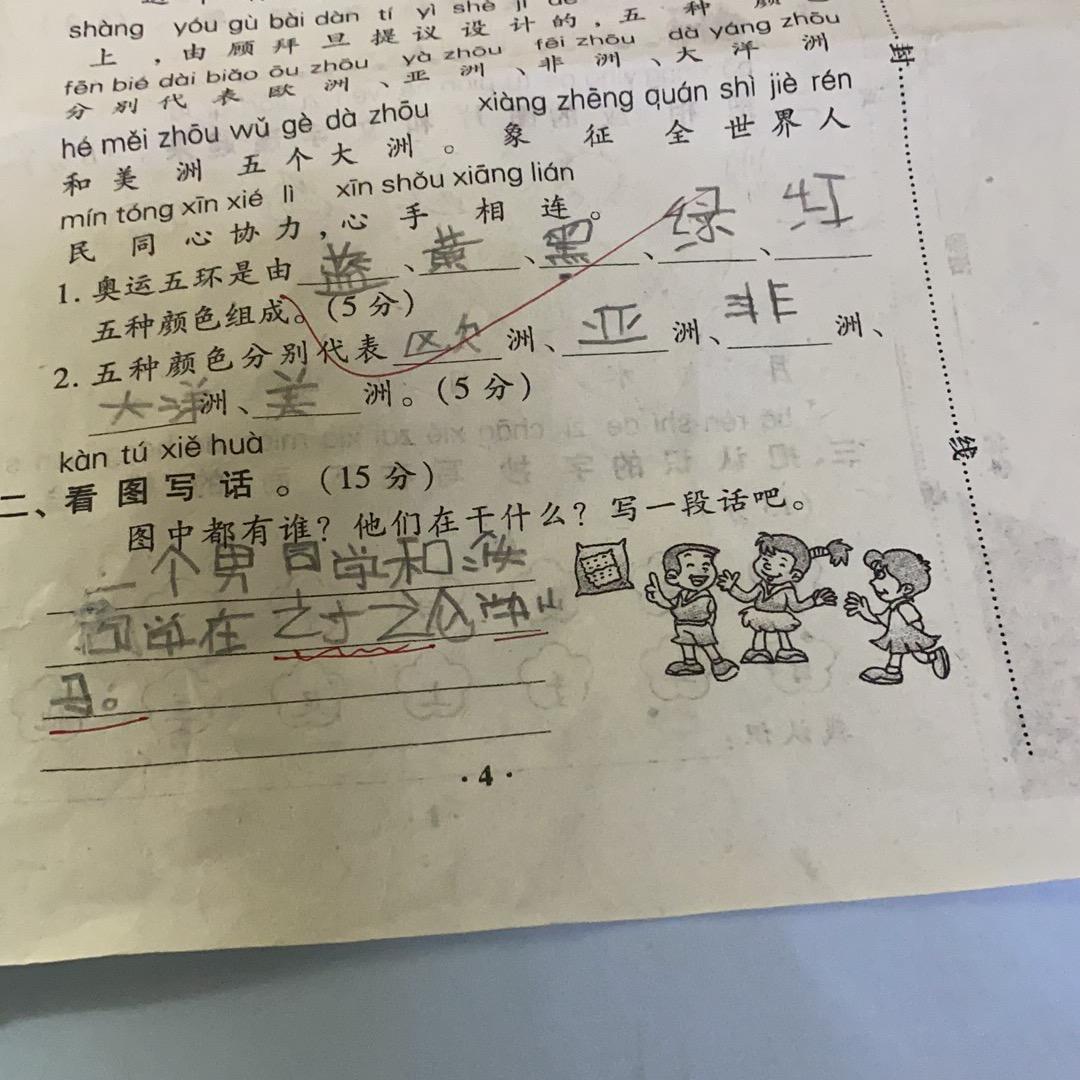 shàng yóu gù bài dàn tí yì shè jì
上,由顾拜旦提议设计的,五种颜
fēn bié dài biǎo ōu zhōu yà zhōu fēi zhōu dà yáng zhōu
分别代表欧洲、亚洲、非洲、大洋洲
hé měi zhōu wǔ gè dà zhōu xiàng zhēng quán shì jiè rén
和美洲五个大洲。象征全世界人
mín tóng xīn xié lì xīn shǒu xiāng lián
民同心协力,心手相连。
1. 奥运五环是由蓝、黄、黑、绿、红
五种颜色组成。(5分)
2. 五种颜色分别代表欧洲、亚洲、非洲、
大洋洲、美洲。(5分)
kàn tú xiě huà
二、看图写话。(15分)
图中都有谁?他们在干什么?写一段话吧。
一个男同学和
同学在
马。
·4·
封
线